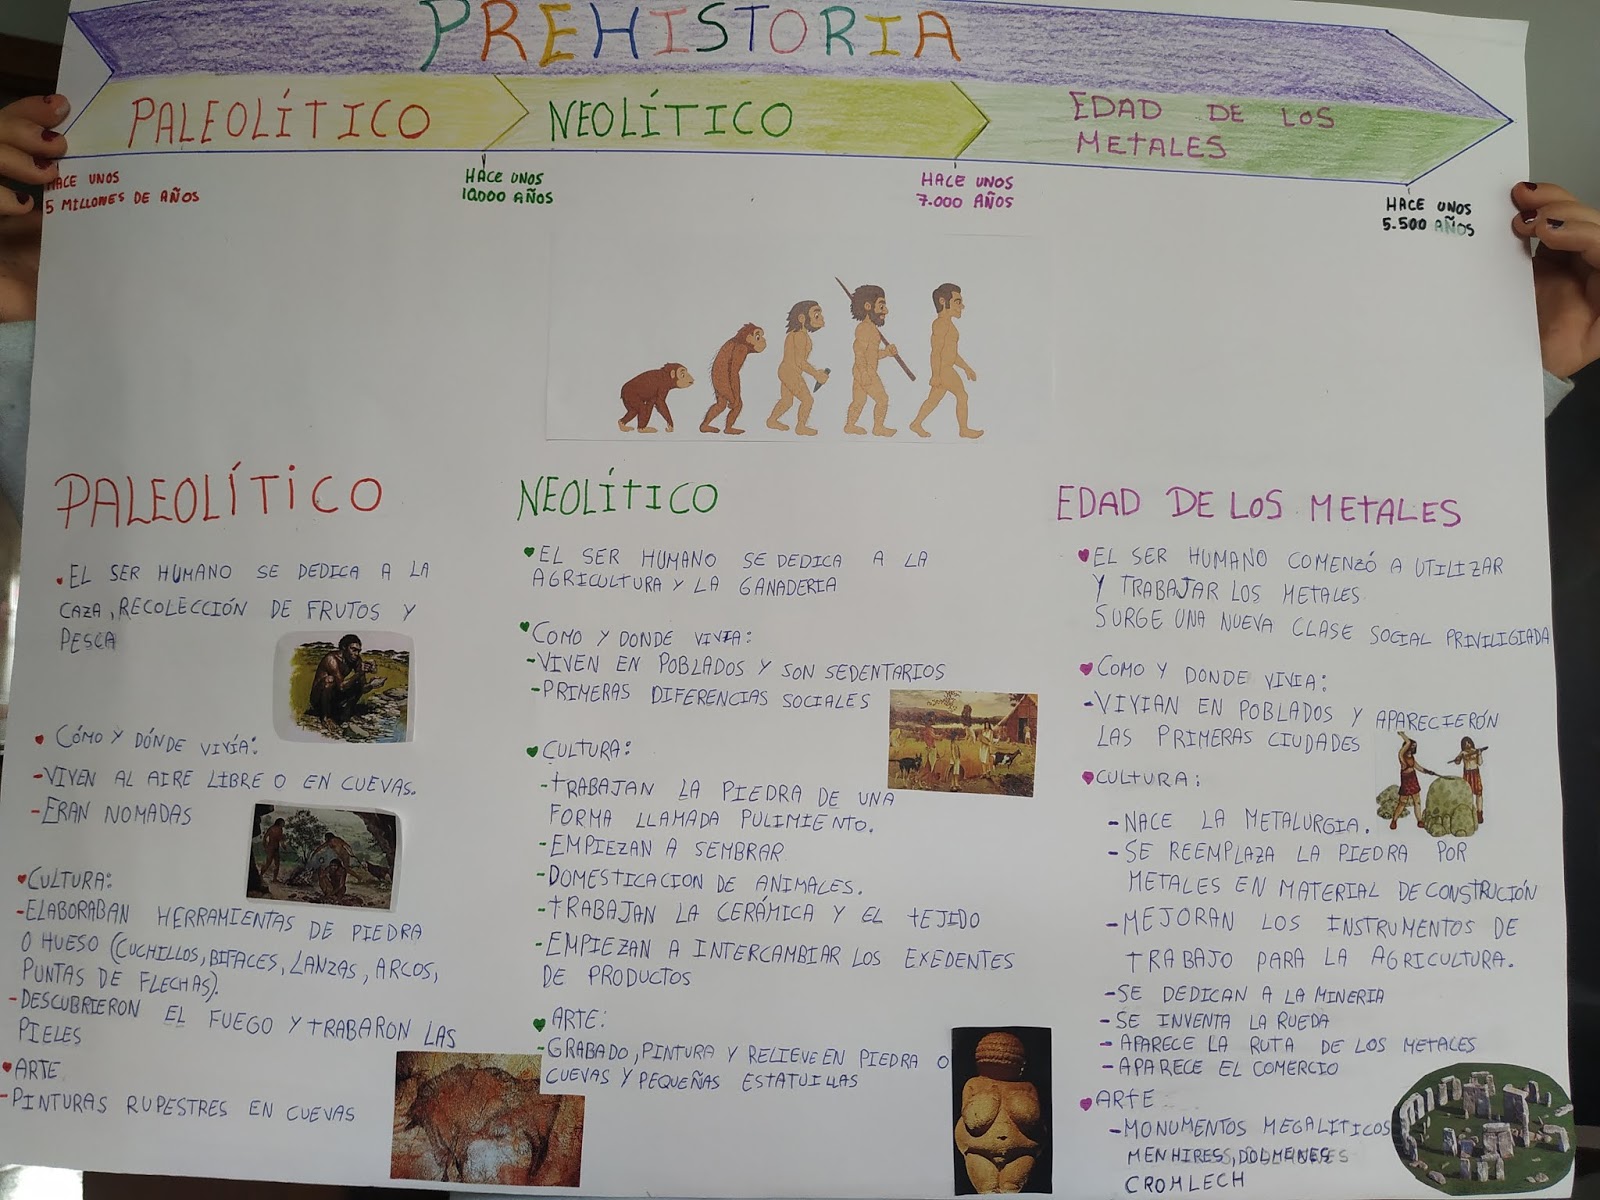 PREHISTORIA
PALEOLÍTICO
NEOLÍTICO
EDAD DE LOS
METALES
HACE UNOS
5 MILLONES DE AÑOS
HACE UNOS
10.000 AÑOS
HACE UNOS
7.000 AÑOS
HACE UNOS
5.500 AÑOS
PALEOLÍTICO
EL SER HUMANO SE DEDICA A LA
CAZA, RECOLECCIÓN DE FRUTOS Y
PESCA
CÓMO Y DÓNDE VIVÍA:
-VIVEN AL AIRE LIBRE O EN CUEVAS.
-ERAN NOMADAS
CULTURA:
-ELABORABAN HERRAMIENTAS DE PIEDRA
O HUESO (CUCHILLOS, BIFACES, LANZAS, ARCOS,
PUNTAS DE FLECHAS).
-DESCUBRIERON EL FUEGO Y TRABARON LAS
PIELES
ARTE
-PINTURAS RUPESTRES EN CUEVAS
NEOLÍTICO
EL SER HUMANO SE DEDICA A LA
AGRICULTURA Y LA GANADERIA
COMO Y DONDE VIVIA:
-VIVEN EN POBLADOS Y SON SEDENTARIOS
-PRIMERAS DIFERENCIAS SOCIALES
CULTURA:
-TRABAJAN LA PIEDRA DE UNA
FORMA LLAMADA PULIMIENTO.
-EMPIEZAN A SEMBRAR
-DOMESTICACION DE ANIMALES.
-TRABAJAN LA CERÁMICA Y EL TEJIDO
-EMPIEZAN A INTERCAMBIAR LOS EXEDENTES
DE PRODUCTOS
ARTE:
-GRABADO, PINTURA Y RELIEVE EN PIEDRA O
CUEVAS Y PEQUEÑAS ESTATUILLAS
EDAD DE LOS METALES
EL SER HUMANO COMENZÓ A UTILIZAR
Y TRABAJAR LOS METALES
SURGE UNA NUEVA CLASE SOCIAL PRIVILIGIADA
COMO Y DONDE VIVIA:
-VIVIAN EN POBLADOS Y APARECIERÓN
LAS PRIMERAS CIUDADES
CULTURA:
-NACE LA METALURGIA.
-SE REEMPLAZA LA PIEDRA POR
METALES EN MATERIAL DE CONSTRUCIÓN
-MEJORAN LOS INSTRUMENTOS DE
TRABAJO PARA LA AGRICULTURA.
-SE DEDICAN A LA MINERIA
-SE INVENTA LA RUEDA
-APARECE LA RUTA DE LOS METALES
-APARECE EL COMERCIO
ARTE
-MONUMENTOS MEGALITICOS
MENHIRES, DOLMENES
CROMLECH